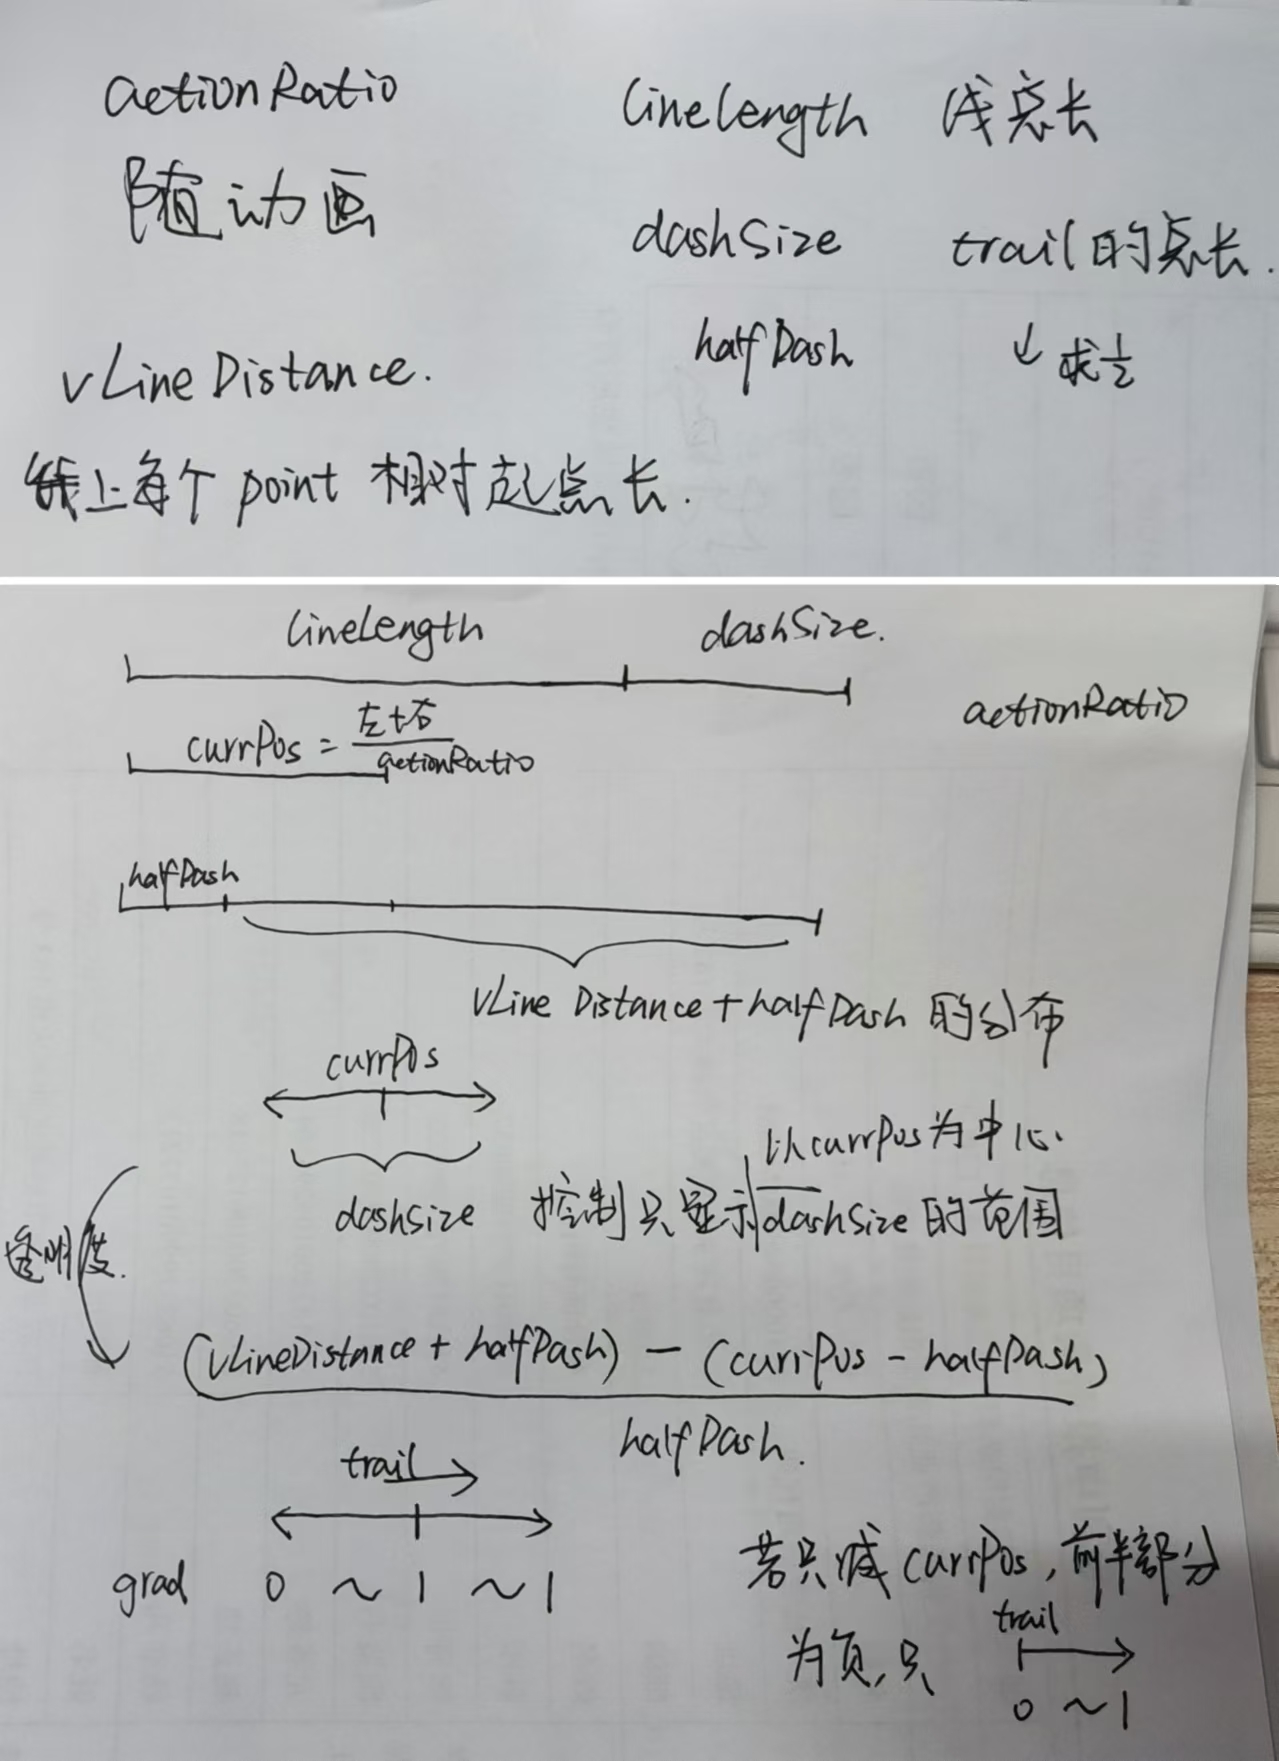 actionRatio
随动画
vLineDistance.
线上每个 point 相对起点长.
lineLength 线总长
dashSize trail的总长.
halfDash ↓ 求1/2
lineLength dashSize.
actionRatio
currPos = 左+右/actionRatio
halfDash
vLineDistance + halfDash 的分布
currPos
以currPos为中心
dashSize 控制只显示 dashSize 的范围
透明度.
(vLineDistance + halfDash) - (currPos - halfDash)
halfDash.
trail
grad 0 ~ 1 ~ 1
若只减 currPos, 前半部分
为负, 只 trail
0 ~ 1